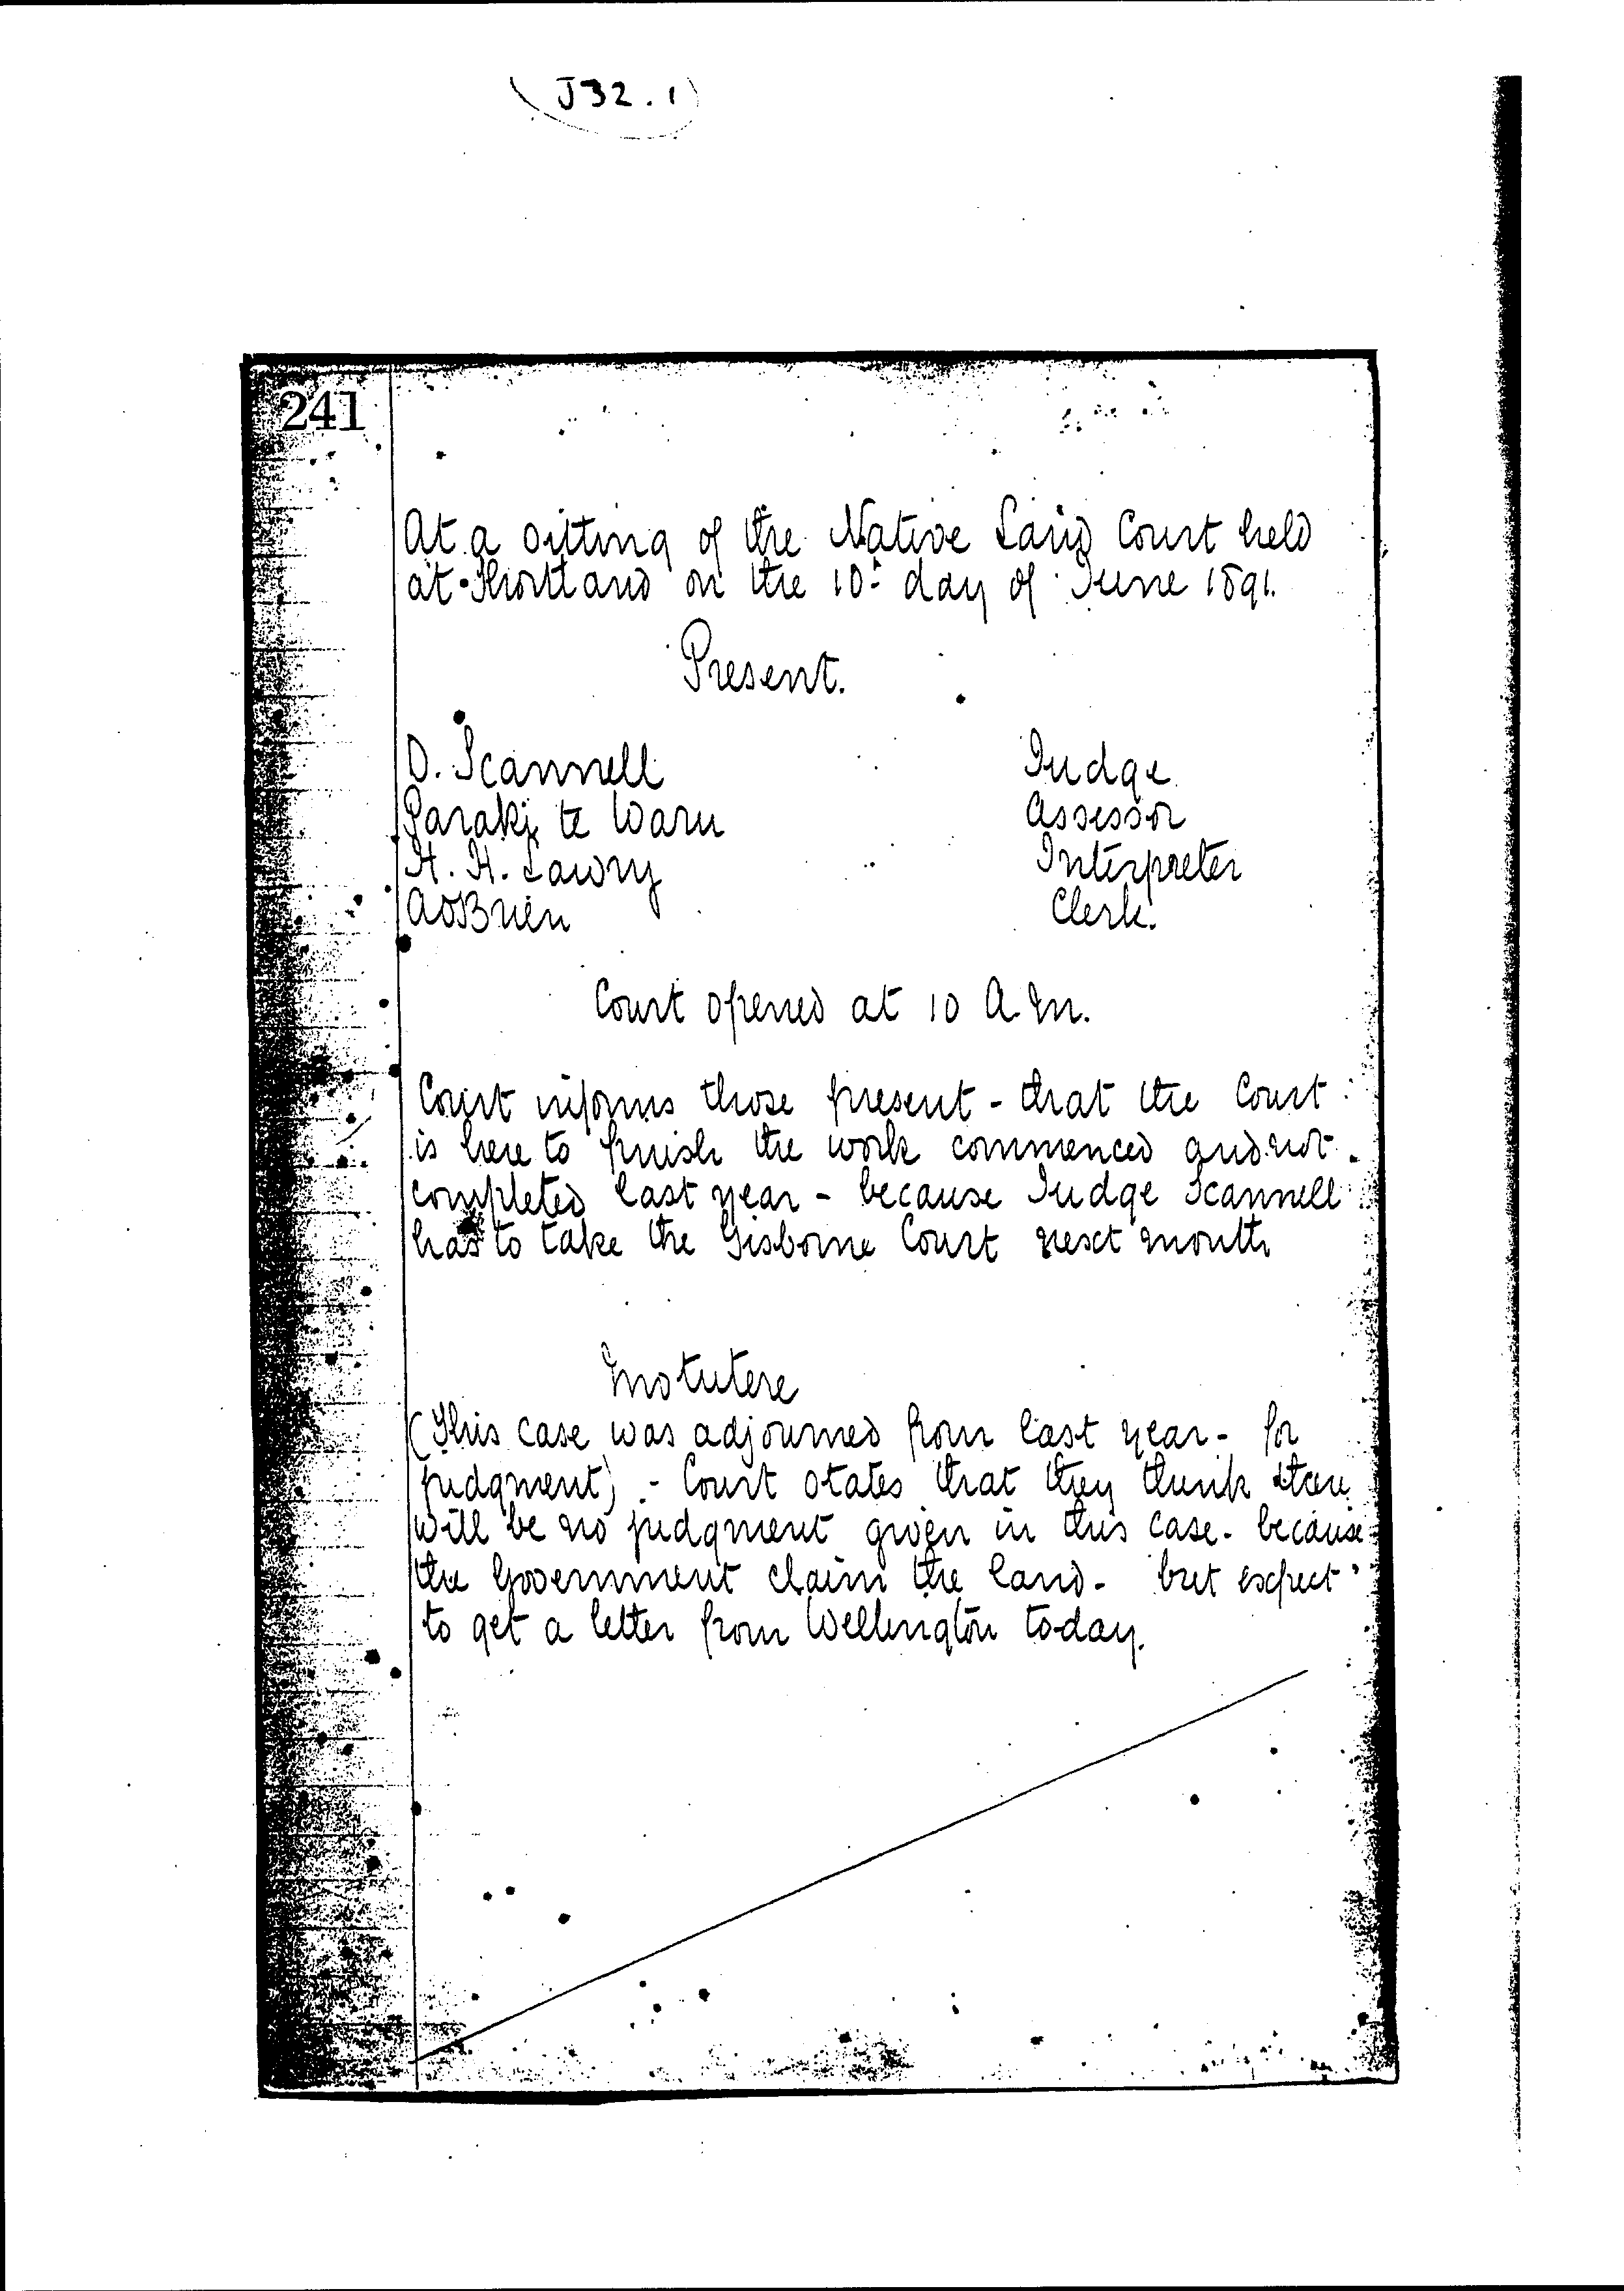 J32.1
241
At a sitting of the Native Land Court held
at Shortland on the 10th day of June 1891.
Present.
D. Scannell Judge
Paraki te Waru Assessor
H. H. Lawry Interpreter
A O'Brien Clerk.
Court opened at 10 A.M.
Court informs those present - that the Court
is here to finish the work commenced and not
completed last year - because Judge Scannell
has to take the Gisborne Court next month
Motutere
(This case was adjourned from last year - for
judgment) - Court states that they think there
will be no judgment given in this case - because
the Government claim the land - but expect
to get a letter from Wellington today.